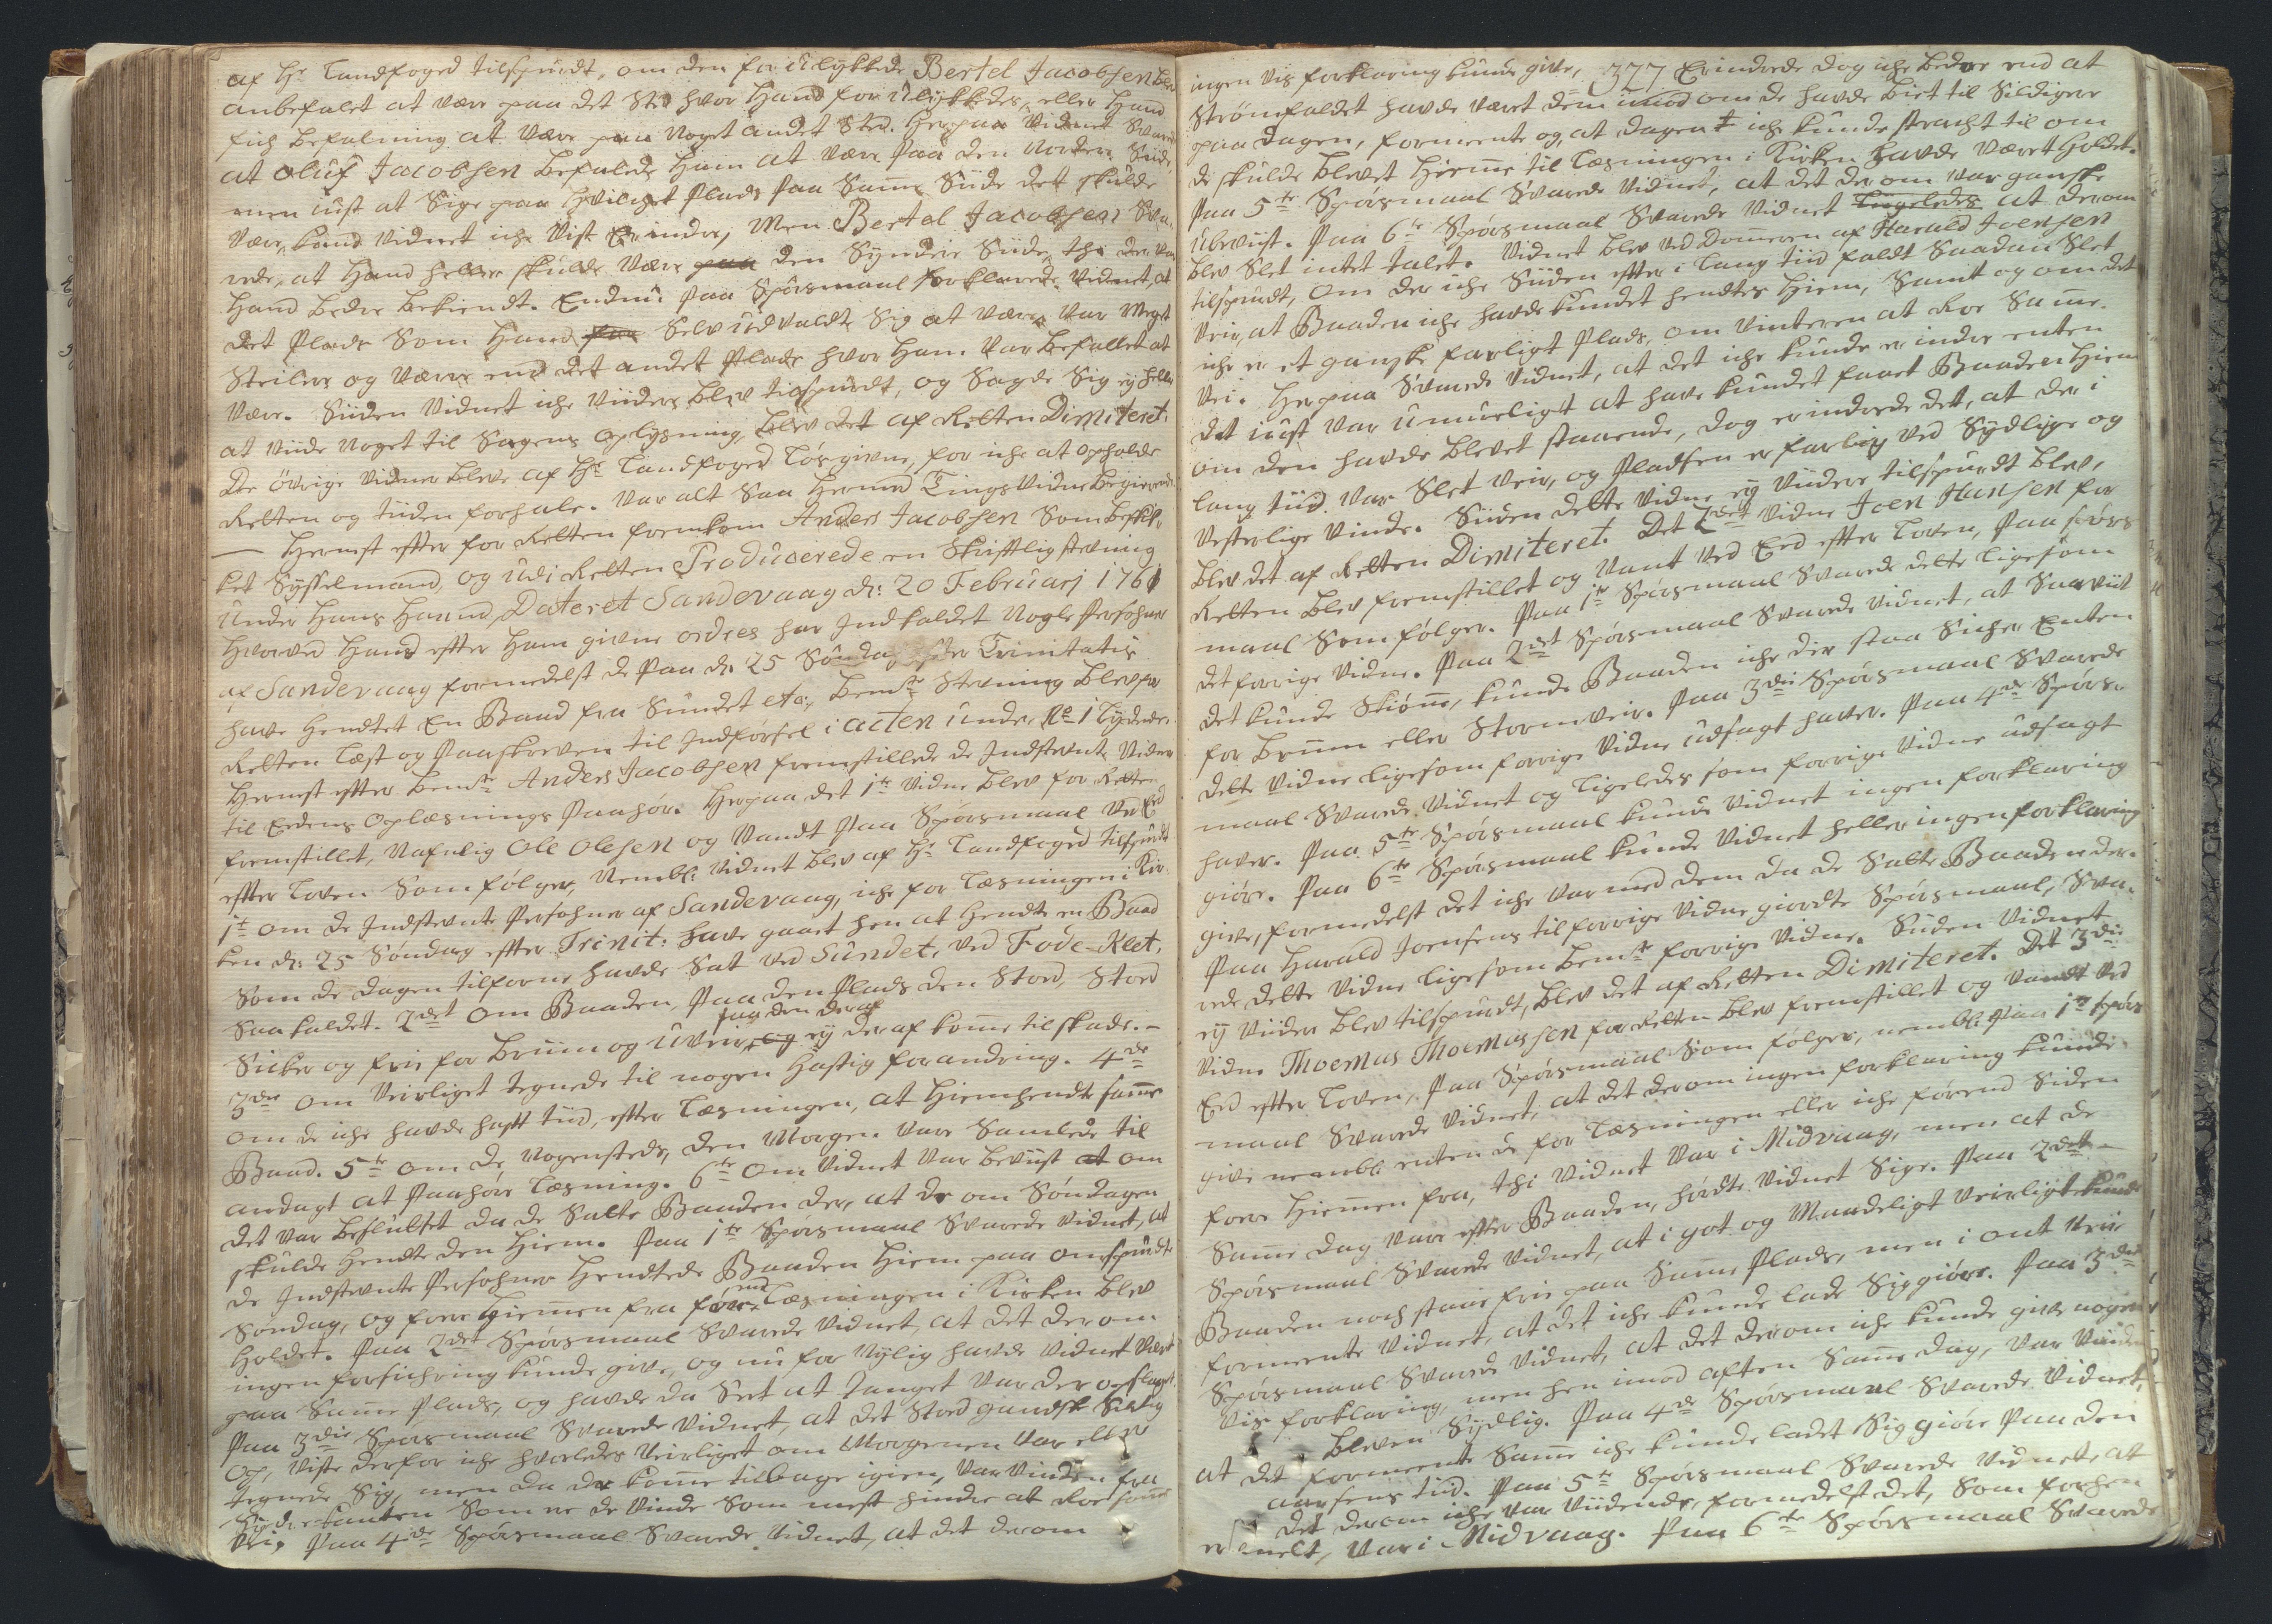 af Hr Landfoged tilspurdt, om den forulykkede Bertel Jacobsen blev
anbefalet at være paa det Sted hvor Hand forulykkedes, eller Hand
fich befalning at være paa noget andet Sted. Herpaa Vidnet Svarede
at Oluf Jacobsen befalede Ham at være paa den Norder Siide,
men iust at Sige paa hvilcket Plads paa Samme Siide det skulde
være, kand Vidnet iche Vist Erindre, Men Bertel Jacobsen Sva-
rede, at Hand heller skulde være paa den Syndere Siide, thi der var
Hand bedre bekiendt. Endnu paa Spørsmaal forklarede Vidnet, at
det Plads Som Hand Selv udvaldte Sig at være, var Meget
Steilere og Værre end det andet Plads hvor Ham var befallet at
være. Siiden Vidnet iche Viidere blev tilspurdt, og Sagde Sig ey heller
at Viide noget til Sagens Oplysning, blev det af Retten Dimiteret.
De øvrige Vidner bleve af Hr Landfoged løsgivne, for iche at opholde
Retten og tiiden forhale. Var alt Saa hermed Tings Vidne begierende.
— Hernest efter for Retten fremkom Anders Jacobsen Som beskik-
ket Sysselmand, og udi Retten Producerede en Skriftlig stevning
under Hans Haand, Dateret Sandevaag d: 20 Februarj 1761
hvorved Hand efter Ham givne ordres har Indkaldet Nogle Persohner
af Sandevaag formedelst de Paa d: 25 Søndag efter Trinitatis
have Hendtet En Baad fra Sundet etc; bemte Stevning blev for
Retten Læst og Paaskreven til Indførsel i acten under No 1 Lydende.
Hernest efter bemte Anders Jacobsen fremstillede de Indstevnte Vidner
til Eedens Oplæsnings Paahør. Herpaa det 1te Vidne blev for Retten
fremstillet, Nafnlig Ole Olesen og Vandt Paa Spørsmaal Ved Eed
efter Loven Som følger, Nembl: Vidnet blev af Hr Landfoged tilspurdt
1te om de Indstevnte Persohner af Sandevaag, iche for Læsningen i Kir-
ken d: 25 Søndag efter Trinit: have gaaet hen at hendte en Baad
Som de dagen tilforne havde Sat ved Sundet, ved Fode-Klet,
Saa kaldet. 2det om Baaden, Paa den Plads den Stod, Stod
Sicker og frie for Brim og Uveir, og ey deraf komme til skade. —
paa den deraf
3die om Veirliget tegnede til nogen Hastig forandring. 4de
om de iche havde hafft tiid, efter Læsningen, at Hiemhendte samme
Baad. 5te om de, nogensteds, den Morgen vare Samlede til
andagt at Paahøre Læsning. 6te Om Vidnet var beviist at om
det var besluttet da de Satte Baaden der, at de om Søndagen
skulde Hendte den Hiem. Paa 1te Spørsmaal Svarede Vidnet, at
de Indstevnte Persohner Hendtede Baaden Hiem paa omspurdte
Søndag, og fore Hiemmen fra førend Læsningen i Kirken blev
Holdet. Paa 2det Spørsmaal Svarede Vidnet, at det derom
ingen forsichring kunde give, og nu for Nylig havde Vidnet Været
paa Samme Plads, og havde da Seet at Tanget var der opslaget.
Paa 3die Spørsmaal Svarede Vidnet, at det Stod gandske Sildig
Op, Viste derfor iche hvorledes Veirliget om Morgenen var eller
tegnede Sig, men da de komme tilbage igien, var Vinden fra
Syderkanten Som er de Vinde Som mest hindre at Roe samme
Vei. Paa 4de Spørsmaal Svarede Vidnet, at det derom
377
ingen Vis forklaring kunde give, Erindrede dog iche bedre end at
Strømfaldet havde været dem imod om de havde biet til Sildigere
paa dagen, formeente og, at dagen iche kunde stracht til om
de skulde blevet Hiemme til Læsningen i Kirken havde været holdet.
Paa 5te Spørsmaal Svarede Vidnet, at det derom var ganske
Ubeviist. Paa 6te Spørsmaal Svarede Vidnet Ligeledes at derom
blev Slet intet talet. Vidnet blev ved Dommeren af Harald Joensen
tilspurdt, Om der iche Siiden efter i lang tiid faldt Saadan Slet
Veir, at Baaden iche havde kundet hendtes Hiem, Samt og om det
iche er et ganske farligt Plads om Vinteren at Roe Samme
Vei. Herpaa Svarede Vidnet, at det iche kunde erindre enten
det iust var umueligt at have kundet faaet Baaden Hiem
om den havde blevet staaende, dog erindrede det, at der i
lang tiid var Slet Veir, og Pladsen er farlig ved Sydlige og
Vesterlige Vinde. Siiden dette Vidne ey Viidere tilspurdt blev,
blev det af Retten Dimiteret. Det 2det Vidne Joen Hansen for
Retten blev fremstillet og Vant ved Eed efter Loven, Paa spørs-
maal Som følger. Paa 1te Spørsmaal Svarede dette Ligesom
det forrige Vidne. Paa 2det Spørsmaal Svarede Vidnet, at Saavit
det kunde Skiønne, kunde Baaden iche der staa Sicher Enten
for Brim eller Stormveir. Paa 3die Spørsmaal Svarede
dette Vidne ligesom forrige Vidne udsagt haver. Paa 4de Spørs-
maal Svarede Vidnet og Ligeledes som forrige Vidne udsagt
haver. Paa 5te Spørsmaal kunde Vidnet ingen forklaring
giøre. Paa 6te Spørsmaal kunde Vidnet heller ingen forklaring
give, formedelst det iche var med dem da de Satte Baaden der.
Paa Harald Joensens til forrige Vidne giordte Spørsmaal, Sva-
rede dette Vidne Ligesom bemte forrige Vidne. Siiden Vidnet
ey Viidere blev tilspurdt, blev det af Retten Dimiteret. Det 3die
Vidne Thoemas Thoemassen for Retten blev fremstillet og Vandt ved
Eed efter Loven, Paa Spørsmaal Som følger, nembl: Paa 1te Spørs
maal Svarede Vidnet, at det derom ingen forklaring kunde
give nembl: enten de for Læsningen eller iche førend Siden
fore Hiemmen fra, thi Vidnet var i Midvaag, men at de
Samme dag vare efter Baaden, hørdte Vidnet Sige. Paa 2det —
Spørsmaal Svarede Vidnet, at i got og Maadeligt Veirligt kunde
Baaden noch staae frie paa Samme Plads, men i ont Veir
formeente Vidnet, at det iche kunde lade Sig giøre. Paa 3die
Spørsmaal Svarede Vidnet, at det derom iche kunde give nogen
Vis forklaring, men hen imod aften Samme dag, var Vinden
bleven Sydlig. Paa 4de Spørsmaal Svarede Vidnet,
at det formeente Samme iche kunde ladet Sig giøre Paa den
aarsens tiid. Paa 5te Spørsmaal Svarede Vidnet, at
det derom iche var Viidende, formedelst det, Som forhen
er melt, var i Midvaag. Paa 6te Spørsmaal Svarede